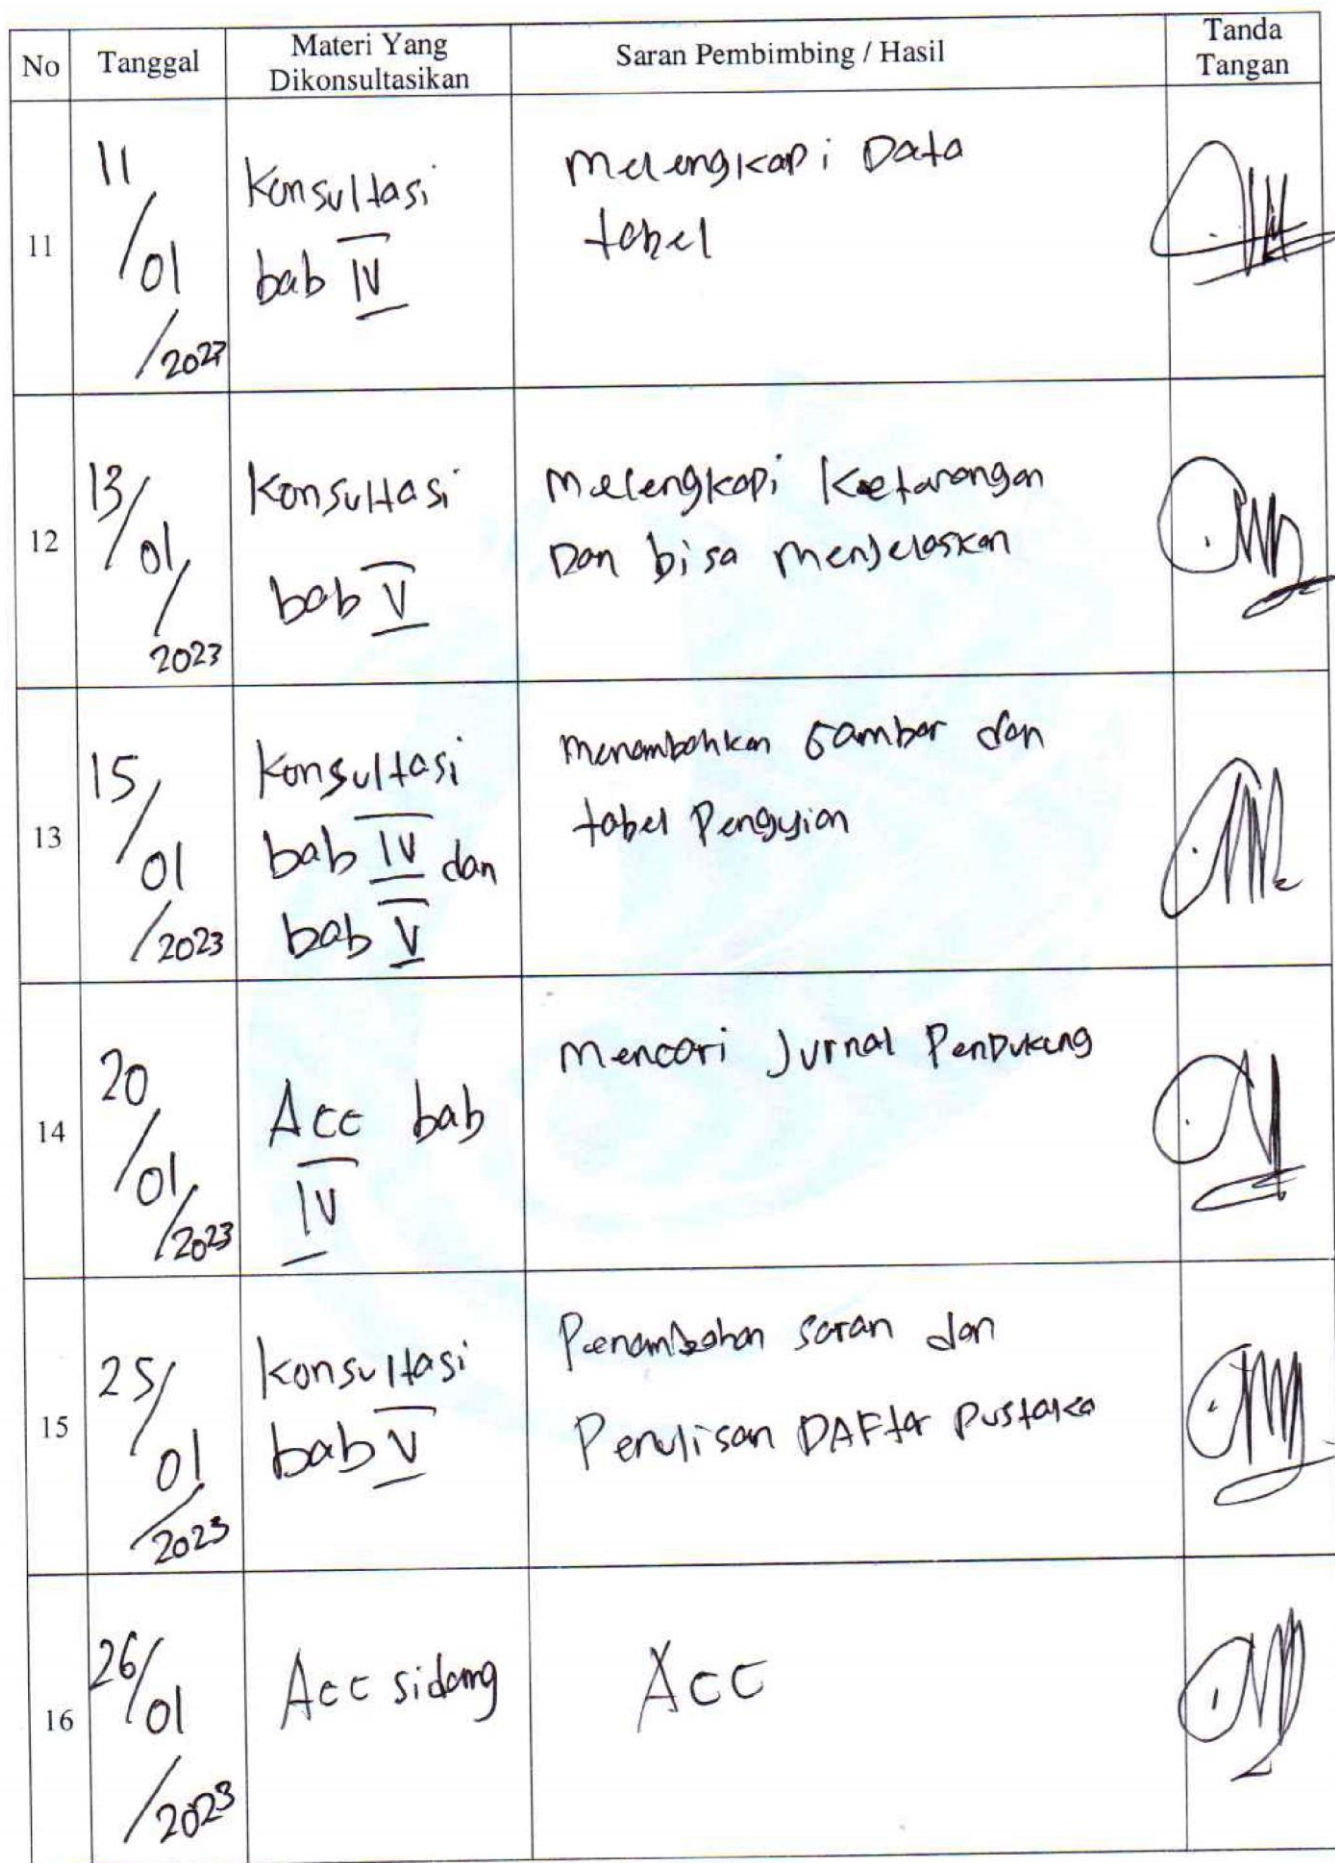 No Tanggal Materi Yang Dikonsultasikan Saran Pembimbing / Hasil Tanda Tangan
11
11/01/2023
Konsultasi
bab IV
Melengkapi Data
tabel
12
13/01/2023
Konsultasi
bab V
Melengkapi Keetarangan
Dan bisa menjelaskan
13
15/01/2023
Konsultasi
bab IV dan
bab V
Menambahkan Gambar dan
tabel Pengujian
14
20/01/2023
Acc bab
IV
Mencari Jurnal Pendukung
15
25/01/2023
Konsultasi
bab V
Penambahan saran dan
Penulisan DAFtar Pustaka
16
26/01/2023
Acc sidang
Acc